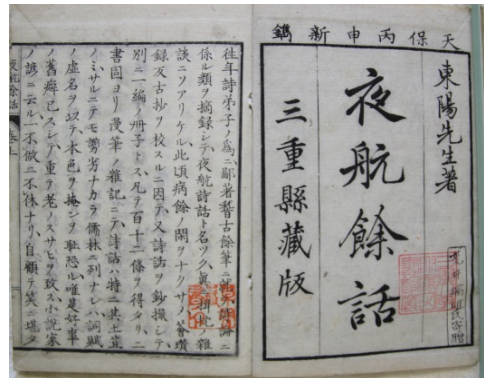 天保丙申新鐫
東陽先生著
夜航餘話
三重縣藏版
氏寄贈
往年詩弟子ノ爲ニ鄙著稽古餘筆ニ
係ル類ヲ摘録シテ夜航詩話ト名ツク 雜
談ニソアリケル此頃病餘ノ閑ヲナクサノ
録及古抄ヲ校スルニ因テ又詩話ヲ鈔撮シテ
別ニ一編ノ冊子トス凡ヲ百十二條ヲ得タリ二
書固ヨリ漫筆ノ雜記ニテ詩話ハ特ニ其土苴
ノミサルニテモ勢劣ナカラ儒林ニ列ナレハ詞賦
ノ虚名ヲ以テ本色ヲ掩ン 恥恐ル唯是好事
ノ舊癖已スシテ重テ老ノスサヒヲ致ス小説家
ノ諺ニ云ル一不做二不休ナリ自顧テ笑ニ堪タ
夜航餘話